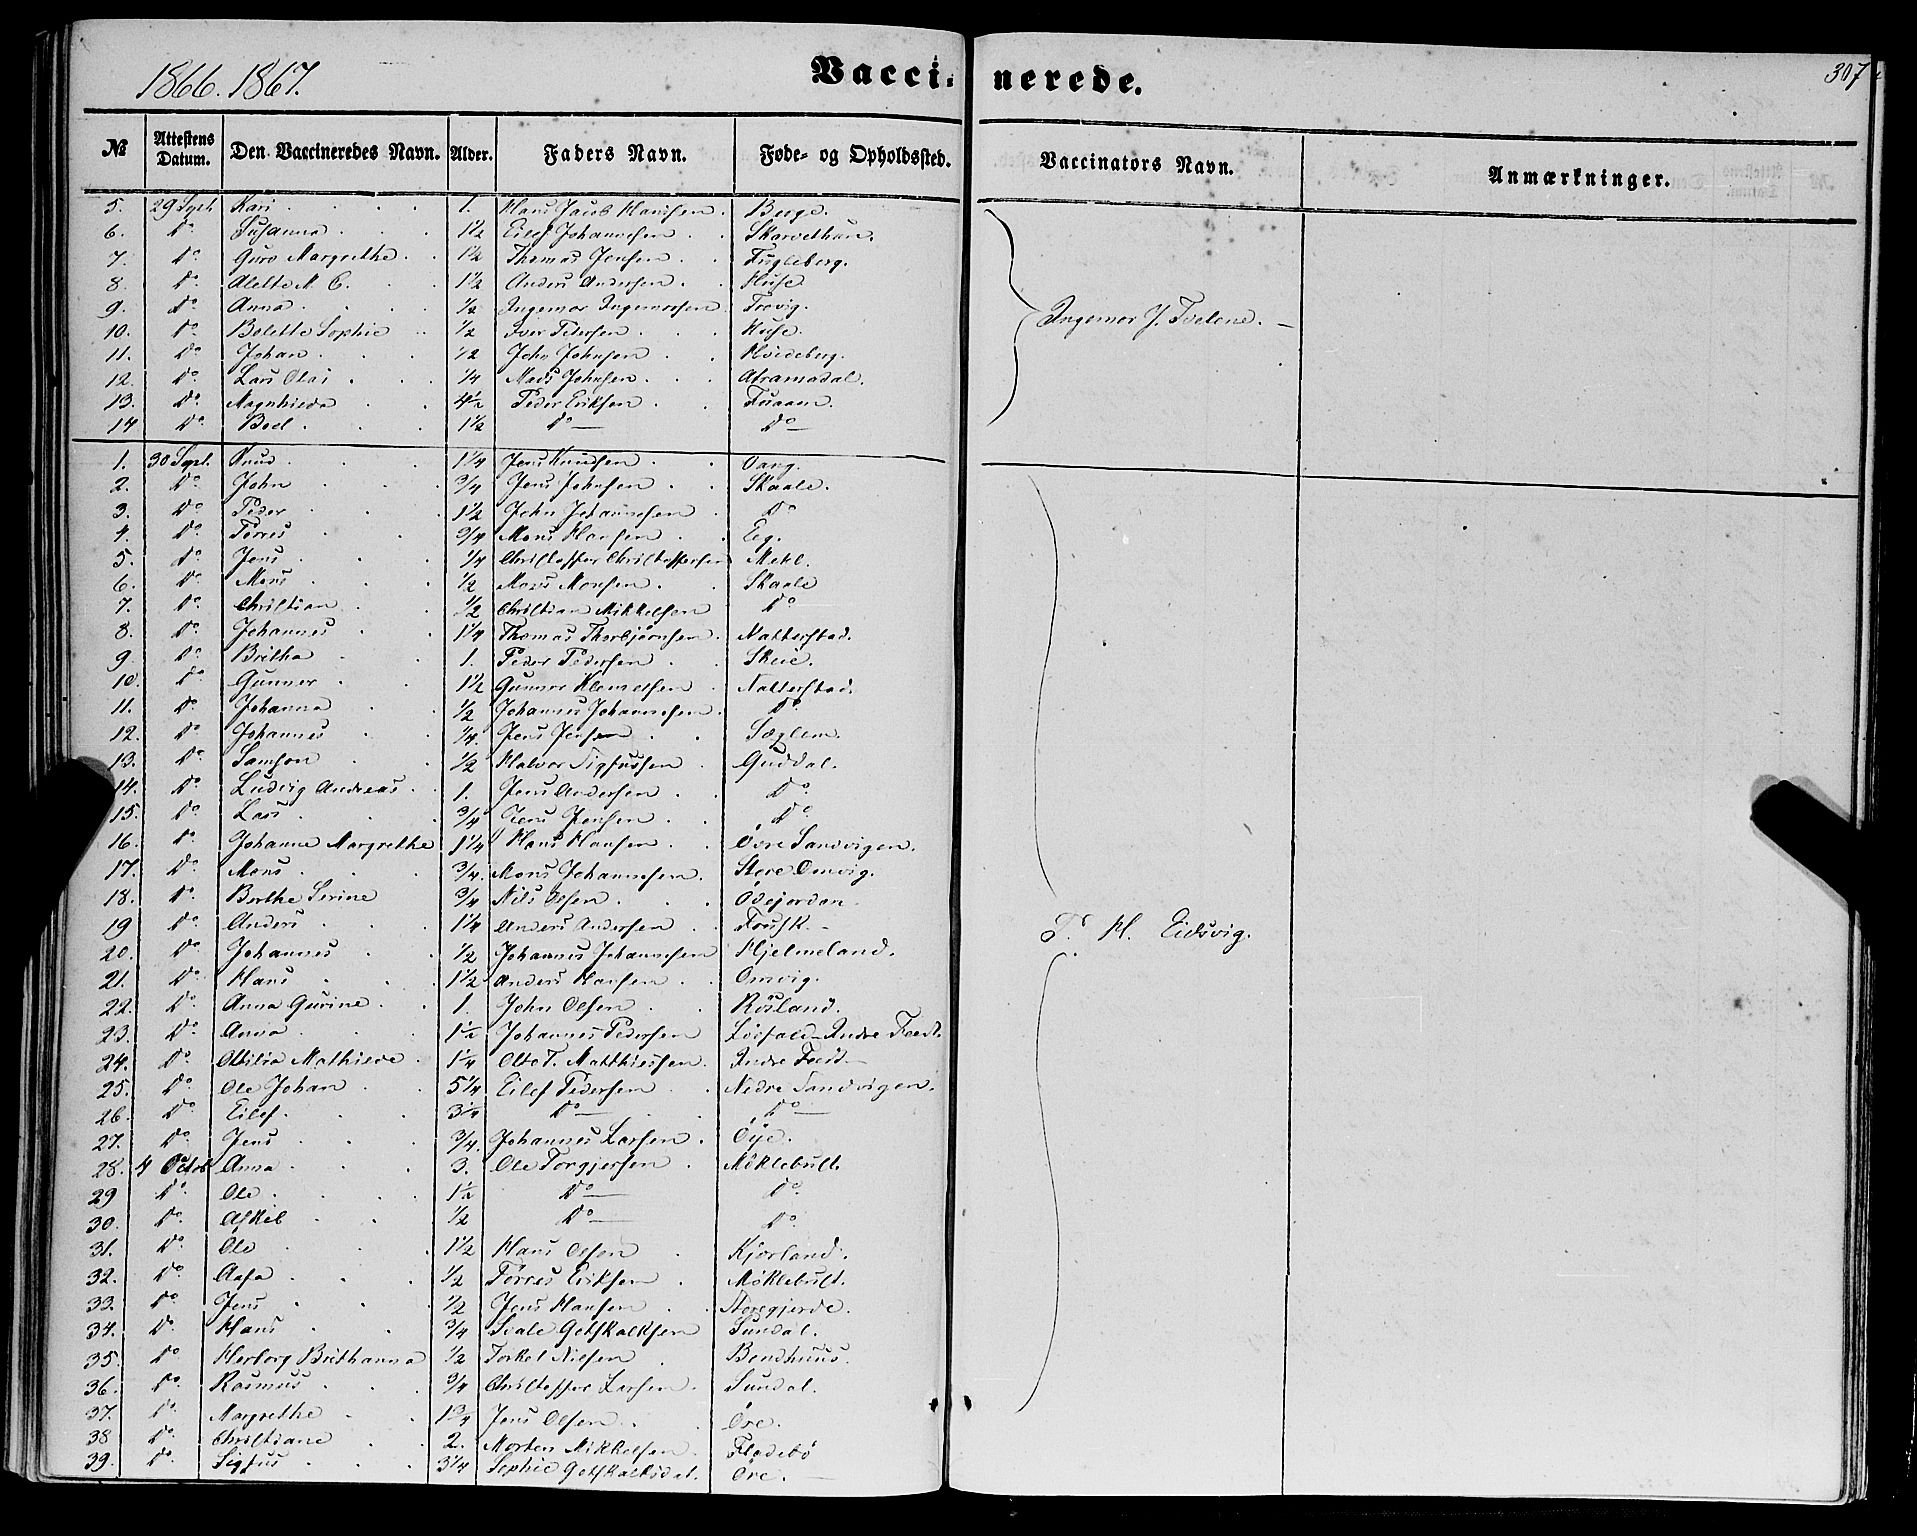 1866. 1867. Vaccinerede. 307
№ Attestens Datum. Den Vaccineredes Navn. Alder. Faders Navn. Føde- og Opholdssted. Vaccinators Navn. Anmærkninger.
5. 29 Sept. Kari 1. Hans Jacob Hansen. Berge.
6. Do Susanna 1½ Eilef Johannesen
7. Do Guro Margrethe 1½ Thomas Jensen Fugleberg.
8. Do Alette M. C. 1½ Anders Andersen Huse
9. Do Anna ½ Ingemor Ingemorsen Trovig.
10. Do Bolette Sophie ½ Iver Pedersen Huse.
11. Do Johan ½ John Johnsen Hvedeberg.
12. Do Lars Olai ¼ Mads Johnsen
13. Do Magnhilda 4½ Peder Eriksen
14 Do Boel 1½ Do Do
Ingemor J. Tvetene.
1. 30 Sept. Knud 1¼ Jens Knudsen Vang.
2. Do John ¾ Jens Johnsen Skaale.
3. Do Peder 1½ John Johannesen Do
4. Do Torres ¾ Mons Hansen Eeg.
5. Do Jens ¼ Christoffer Christoffersen Mehl.
6. Do Mons ½ Mons Monsen Skaale
7. Do Christian ½ Christian Mikkelsen Do
8. Do Johannes 1¼ Thomas Thorbjørnsen Natterstad.
9. Do Britha 1. Peder Pedersen Skeie.
10. Do Gunner 1½ Gunner Klemetsen Natterstad.
11. Do Johanna ½ Johannes Johannesen Do
12. Do Johannes ¼. Jens Jensen Sæglem.
13. Do Samson ½ Halvor Sigfussen Guddal.
14. Do Ludvig Andreas 1. Jens Andersen Do
15. Do Lars ¾ Jens Jensen Do
16. Do Johanne Margrethe 1¼ Hans Hansen Øvre Sandvigen.
17. Do Mons ¾. Mons Johannesen. Store Omvig.
18. Do Berthe Serine ¾ Nils Olsen Ødejordan.
19 Do Anders 1¼ Anders Andersen Fousk.
20. Do Johannes ½ Johannes Johannesen Hjelmeland.
21. Do Hans 1½ Anders Hansen Omvig.
22. Do Anna Gurine 1. John Olsen Røsland.
23. Do Anna 1½ Johannes Pedersen
24. Do Otilia Mathilde 1¼ Ole T. Matthiessen
25. Do Ole Johan 5¼ Eilef Pedersen Nedre Sandvigen.
26. Do Eilef. Do Do
27. Do Jens ¾. Johannes Larsen Øye.
28. 4 Octob Anna 3. Ole Torgjersen Møklebust.
29 Do Ole 1½ Do Do
30. Do Askil ½ Do Do
31. Do Ole 1½ Hans Olsen Kjerland.
32. Do Aasa ½ Torres Eriksen Møklebust.
33. Do Jens ½ Jens Hansen Neregjerde.
34. Do Hans ¾ Svale Gotskalksen Sundal.
35 Do Herborg Brithanna ½ Torkel Nilsen Bondhuus.
36. Do Rasmus ¾ Christoffer Larsen. Sundal.
37. Do Margrethe 1¾ Jens Olsen Øre.
38 Do Christiane 2. Morten Mikkelsen Flødebø
39. Do Sigfus 3¼ Sophie Gotskalksdat. Øre.
T. H. Eidsvig.